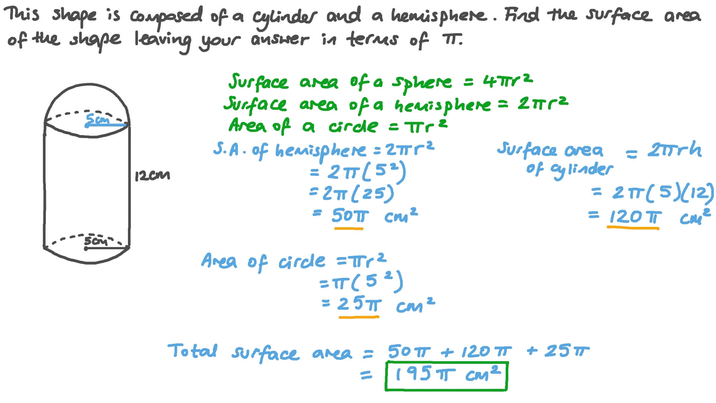 This shape is composed of a cylinder and a hemisphere. Find the surface area
of the shape leaving your answer in terms of π.
Surface area of a sphere = 4πr²
Surface area of a hemisphere = 2πr²
Area of a circle = πr²
5cm
12cm
5cm
S.A. of hemisphere = 2πr²
= 2π(5²)
= 2π(25)
= 50π cm²
Surface area of cylinder = 2πrh
= 2π(5)(12)
= 120π cm²
Area of circle = πr²
= π(5²)
= 25π cm²
Total surface area = 50π + 120π + 25π
= 195π cm²